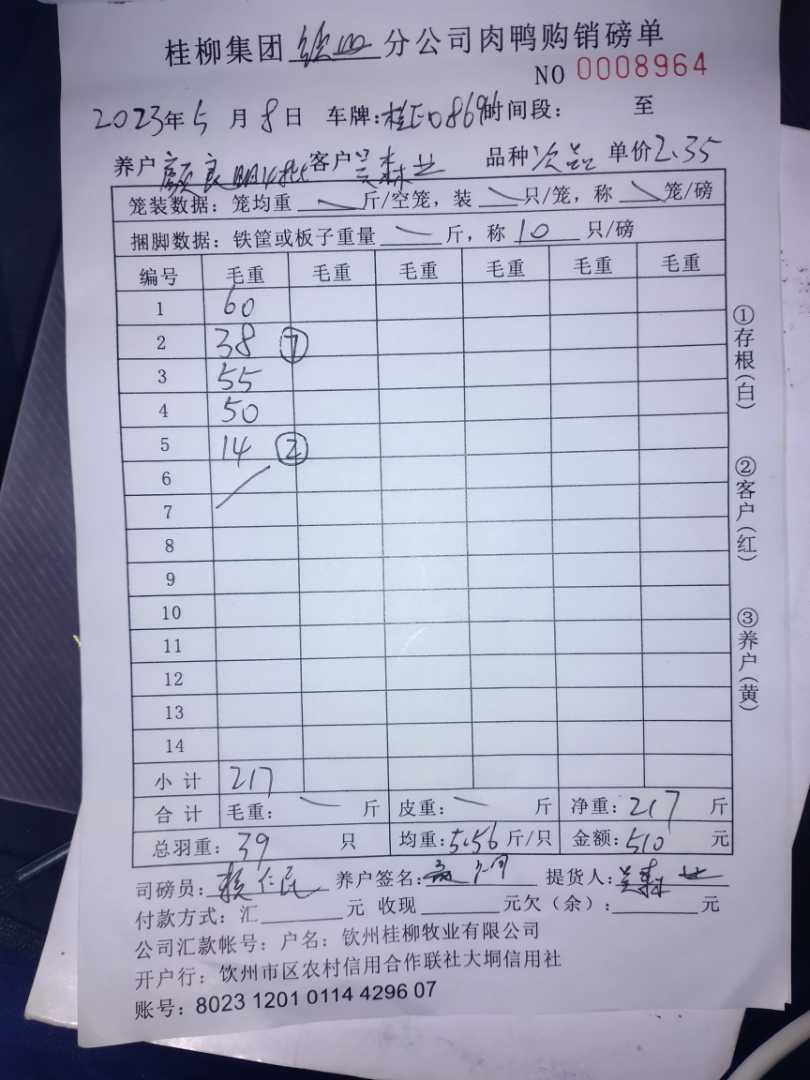 桂柳集团 钦州 分公司肉鸭购销磅单
NO 0008964
2023年5月8日 车牌:桂E08696 时间段: 至
养户 颜良明 客户 吴森业 品种 次品 单价 2.35
笼装数据：笼均重 斤/空笼，装 只/笼，称 笼/磅
捆脚数据：铁筐或板子重量 斤，称 10 只/磅
编号 毛重 毛重 毛重 毛重 毛重 毛重
1 60
2 38 ⑦
3 55
4 50
5 14 ②
6
7
8
9
10
11
12
13
14
小计 217
合计 毛重： 斤 皮重： 斤 净重：217 斤
总羽重：39 只 均重：5.56 斤/只 金额：510 元
司磅员：赖仁民 养户签名： 提货人：吴森业
付款方式：汇 元 收现 元欠（余）： 元
公司汇款帐号：户名：钦州桂柳牧业有限公司
开户行：饮州市区农村信用合作联社大垌信用社
账号：8023 1201 0114 4296 07
①存根(白)
②客户(红)
③养户(黄)